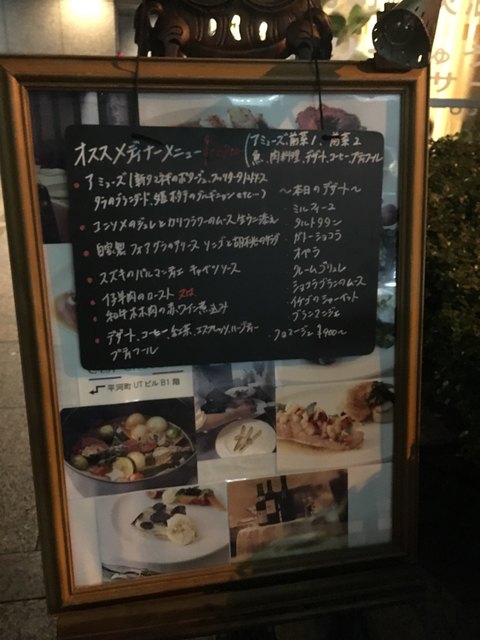 オススメディナーメニュー
(アミューズ、前菜1、前菜2
魚、肉料理、デザート、コーヒー、プティフール
・アミューズ(新タマネギのポタージュ、
タラのブランダード、
・コンソメのジュレとカリフラワーのムース、生ウニ添え
・自家製フォアグラのテリーヌ リンゴと胡桃の
・スズキのパルマ キャベツソース
・仔羊肉のロースト 又は
・和牛ホホ肉の赤ワイン煮込み
・デザート、コーヒー、紅茶、エスプレッソ、ハーブティー
プティフール
〜本日のデザート〜
ミルフィーユ
タルトタタン
ガトーショコラ
オペラ
クレームブリュレ
ショコラブランのムース
イチゴのシャーベット
ブランマンジェ
フロマージュ ¥900〜
平河町 UTビル B1階